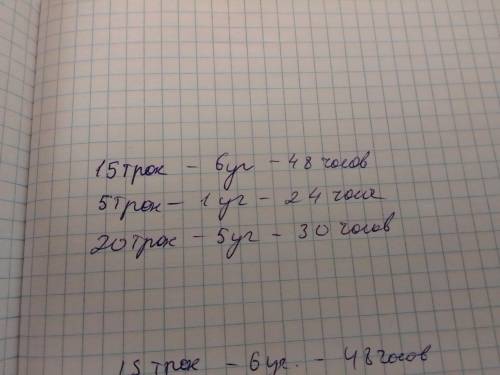 15 трок - 6 уг - 48 часов
5 трок - 1 уг - 24 часа
20 трок - 5 уг - 30 часов
15 трок - 6 уг. - 48 часов